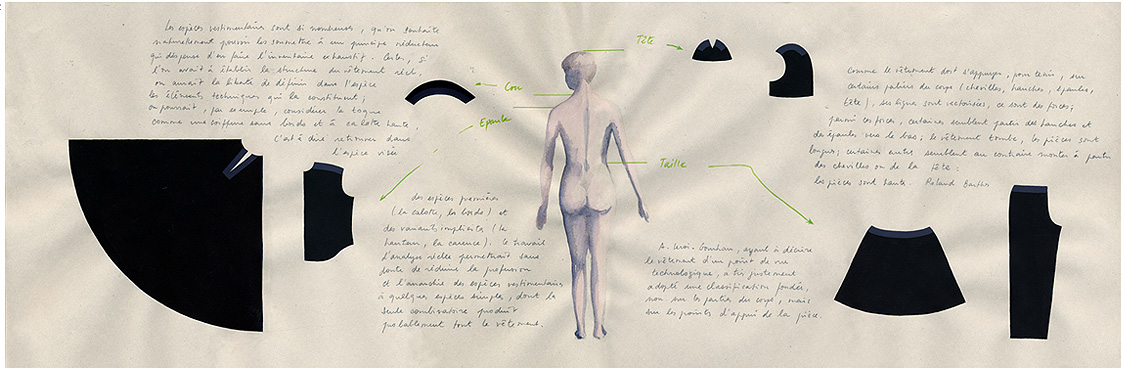 Les espèces vestimentaires sont si nombreuses, qu'on souhaite
naturellement pouvoir les soumettre à un principe réducteur
qui dispense d'en faire l'inventaire exhaustif. Certes, si
l'on avait à établir la structure du vêtement réel,
on aurait la liberté de définir dans l'espèce
les éléments techniques qui la constituent;
on pourrait, par exemple, considérer la toque
comme une coiffure sans bords et à calotte haute,
c'est à dire retrouver dans
l'espèce visée
des espèces premières
(la calotte, les bords) et
des variants implicites (la
hauteur, la carence). Ce travail
d'analyse réelle permettrait sans
doute de réduire la profusion
et l'anarchie des espèces vestimentaires
à quelques espèces simples, dont la
seule combinatoire produit
probablement tout le vêtement.
Tête
Cou
Epaule
Taille
A. Leroi-Gourhan, ayant à décrire
le vêtement d'un point de vue
technologique, a très justement
adopté une classification fondée,
non sur les parties du corps, mais
sur les points d'appui de la pièce.
Comme le vêtement doit s'appuyer, pour tenir, sur
certains paliers du corps (chevilles, hanches, épaules,
tête), ses lignes sont vectorisées, ce sont des forces;
parmi ces forces, certaines semblent partir des hanches et
des épaules vers le bas; le vêtement tombe, les pièces sont
longues; certaines autres semblent au contraire monter à partir
des chevilles ou de la tête:
les pièces sont hautes. Roland Barthes